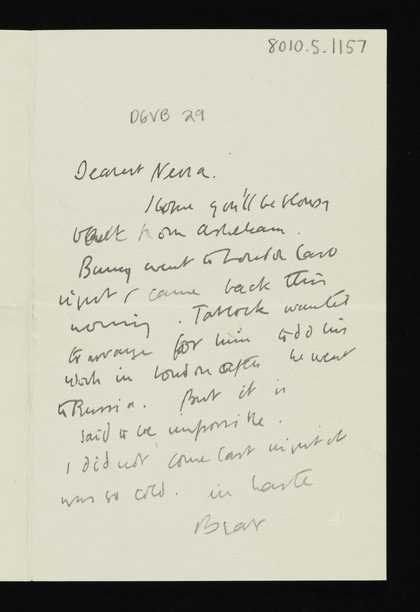 8010.5.1157
DGVB 29
Dearest Nessa.
I hope you'll be
back from Asheham.
Bunny went to London last
night & came back this
morning. Tatlock wanted
to arrange for him to do his
work in London after he went
to Russia. But it is
said to be impossible.
I did not come last night it
was so cold. in haste
Bear